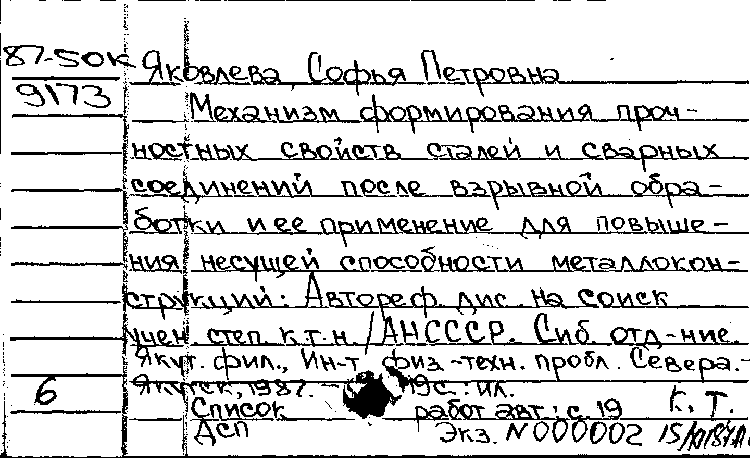 87-50К Яковлева Софья Петровна
9173 Механизм формирования проч-
ностных свойств сталей и сварных
соединений после взрывной обра-
ботки и ее применение для повыше-
ния несущей способности металлокон-
струкций: Автореф. дис. на соиск
учен. степ. к.т.н. / АНСССР. Сиб. отд-ние.
Якут. фил., Ин-т физ.-техн. пробл. Севера.-
Якутск, 1987. - 19с.: ил.
6 Список работ авт.: с. 19 к. т.
Дсп Экз. N000002